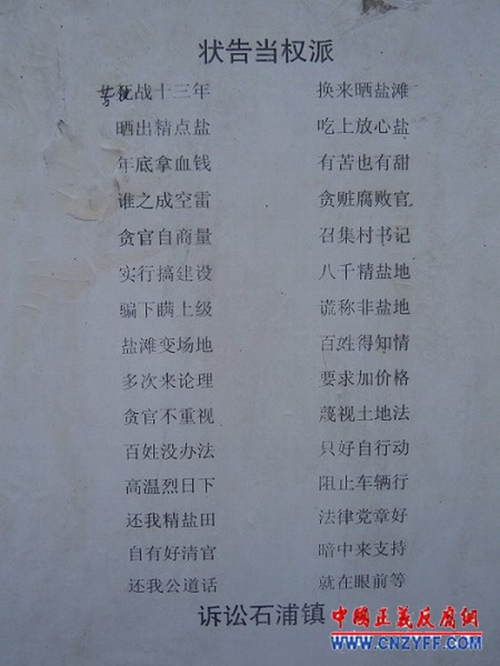 状告当权派
苦死战十三年 换来晒盐滩
晒出精点盐 吃上放心盐
年底拿血钱 有苦也有甜
谁之成空雷 贪赃腐败官
贪官自商量 召集村书记
实行搞建设 八千精盐地
骗下瞒上级 谎称非盐地
盐滩变场地 百姓得知情
多次来论理 要求加价格
贪官不重视 蔑视土地法
百姓没办法 只好自行动
高温烈日下 阻止车辆行
还我精盐田 法律党章好
自有好清官 暗中来支持
还我公道话 就在眼前等
诉讼石浦镇
中國正義反腐網
WWW.CNZYFF.COM